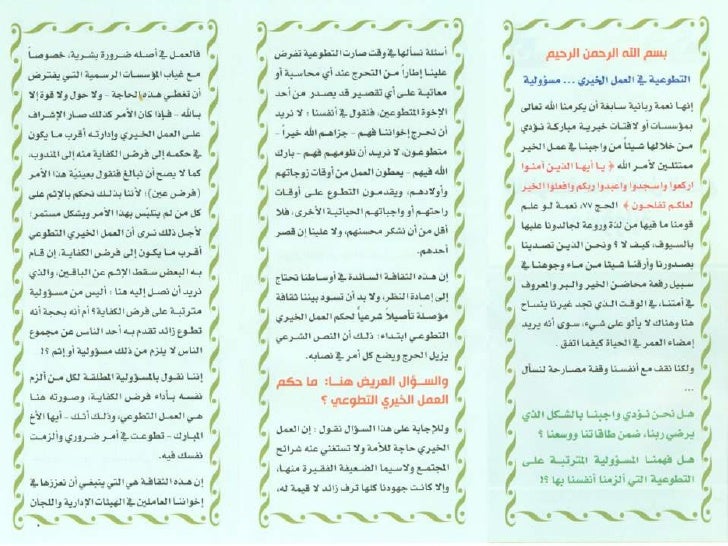 بسم الله الرحمن الرحيم
التطوعية في العمل الخيري ... مسؤولية
إنها نعمة ربانية سابغة أن يكرمنا الله تعالى
بمؤسسات أو لافتات خيرية مباركة نؤدي
من خلالها شيئاً من واجبنا في عمل الخير
ممتثلين لأمر الله ﴿ يا أيها الذين آمنوا
اركعوا واسجدوا واعبدوا ربكم وافعلوا الخير
لعلكم تفلحون ﴾ الحج ٧٧، نعمة لو علم
قومنا ما فيها من لذة وروعة لجالدونا عليها
بالسيوف، كيف لا ؟ ونحن الذين تصدينا
بصدورنا وأرقنا شيئا من ماء وجوهنا في
سبيل رفعة محاضن الخير والبر والمعروف
في أمتنا، في الوقت الذي تجد غيرنا ينساح
هنا وهناك لا يألو على شيء، سوى أنه يريد
إمضاء العمر في الحياة كيفما اتفق .
ولكنا نقف مع أنفسنا وقفة مصارحة لنسأل
...
هل نحن نؤدي واجبنا بالشكل الذي
يرضي ربنا، ضمن طاقاتنا ووسعنا ؟
هل فهمنا المسؤولية المترتبة على
التطوعية التي ألزمنا أنفسنا بها ؟!
أسئلة نسألها في وقت صارت التطوعية تفرض
علينا إطاراً من التحرج عند أي محاسبة أو
معاتبة على أي تقصير قد يصدر من أحد
الإخوة المتطوعين، فنقول في أنفسنا : لا نريد
أن نحرج إخواننا فهم - جزاهم الله خيراً -
متطوعون، لا نريد أن نلومهم فهم - بارك
الله فيهم - يعطون العمل من أوقات زوجاتهم
وأولادهم، ويقدمون التطوع على أوقات
راحتهم أو واجباتهم الحياتية الأخرى، فلا
أقل من أن نشكر محسنهم، ولا علينا إن قصر
أحدهم.
إن هذه الثقافة السائدة في أوساطنا تحتاج
إلى إعادة النظر، ولا بد أن تسود بيننا ثقافة
مؤصلة تأصيلاً شرعياً لحكم العمل الخيري
التطوعي ابتداء: ذلك أن النص الشرعي
يزيل الحرج ويضع كل أمر في نصابه.
والسؤال العريض هنا: ما حكم
العمل الخيري التطوعي ؟
وللإجابة على هذا السؤال نقول : إن العمل
الخيري حاجة للأمة ولا تستغني عنه شرائح
المجتمع ولاسيما الضعيفة الفقيرة منها،
وإلا كانت جهودنا كلها ترف زائد لا قيمة له،
فالعمل في أصله ضرورة بشرية، خصوصاً
مع غياب المؤسسات الرسمية التي يفترض
أن تغطي هذه الحاجة - ولا حول ولا قوة إلا
بالله - فإذا كان الأمر كذلك صار الإشراف
على العمل الخيري وإدارته أقرب ما يكون
في حكمه إلى فرض الكفاية منه إلى المندوب،
كما لا يصح أن نبالغ فنقول بعينية هذا الأمر
(فرض عين)؛ لأننا بذلك نحكم بالإثم على
كل من لم يتلبّس بهذا الأمر وبشكل مستمر؛
لأجل ذلك نرى أن العمل الخيري التطوعي
أقرب ما يكون إلى فرض الكفاية، إن قام
به البعض سقط الإثم عن الباقين، والذي
نريد أن نصل إليه هنا : أليس من مسؤولية
مترتبة على فرض الكفاية؟ أم أنه بحجة أنه
تطوع زائد تقدم به أحد الناس عن مجموع
الناس لا يلزم من ذلك مسؤولية أو إثم ؟!
إننا نقول بالمسؤولية المطلقة لكل من ألزم
نفسه بأداء فرض الكفاية، وصورته هنا
هي العمل التطوعي، وذلك أنك - أيها الأخ
المبارك - تطوعت في أمر ضروري وألزمت
نفسك فيه.
إن هذه الثقافة هي التي ينبغي أن نعززها في
إخواننا العاملين في الهيئات الإدارية واللجان